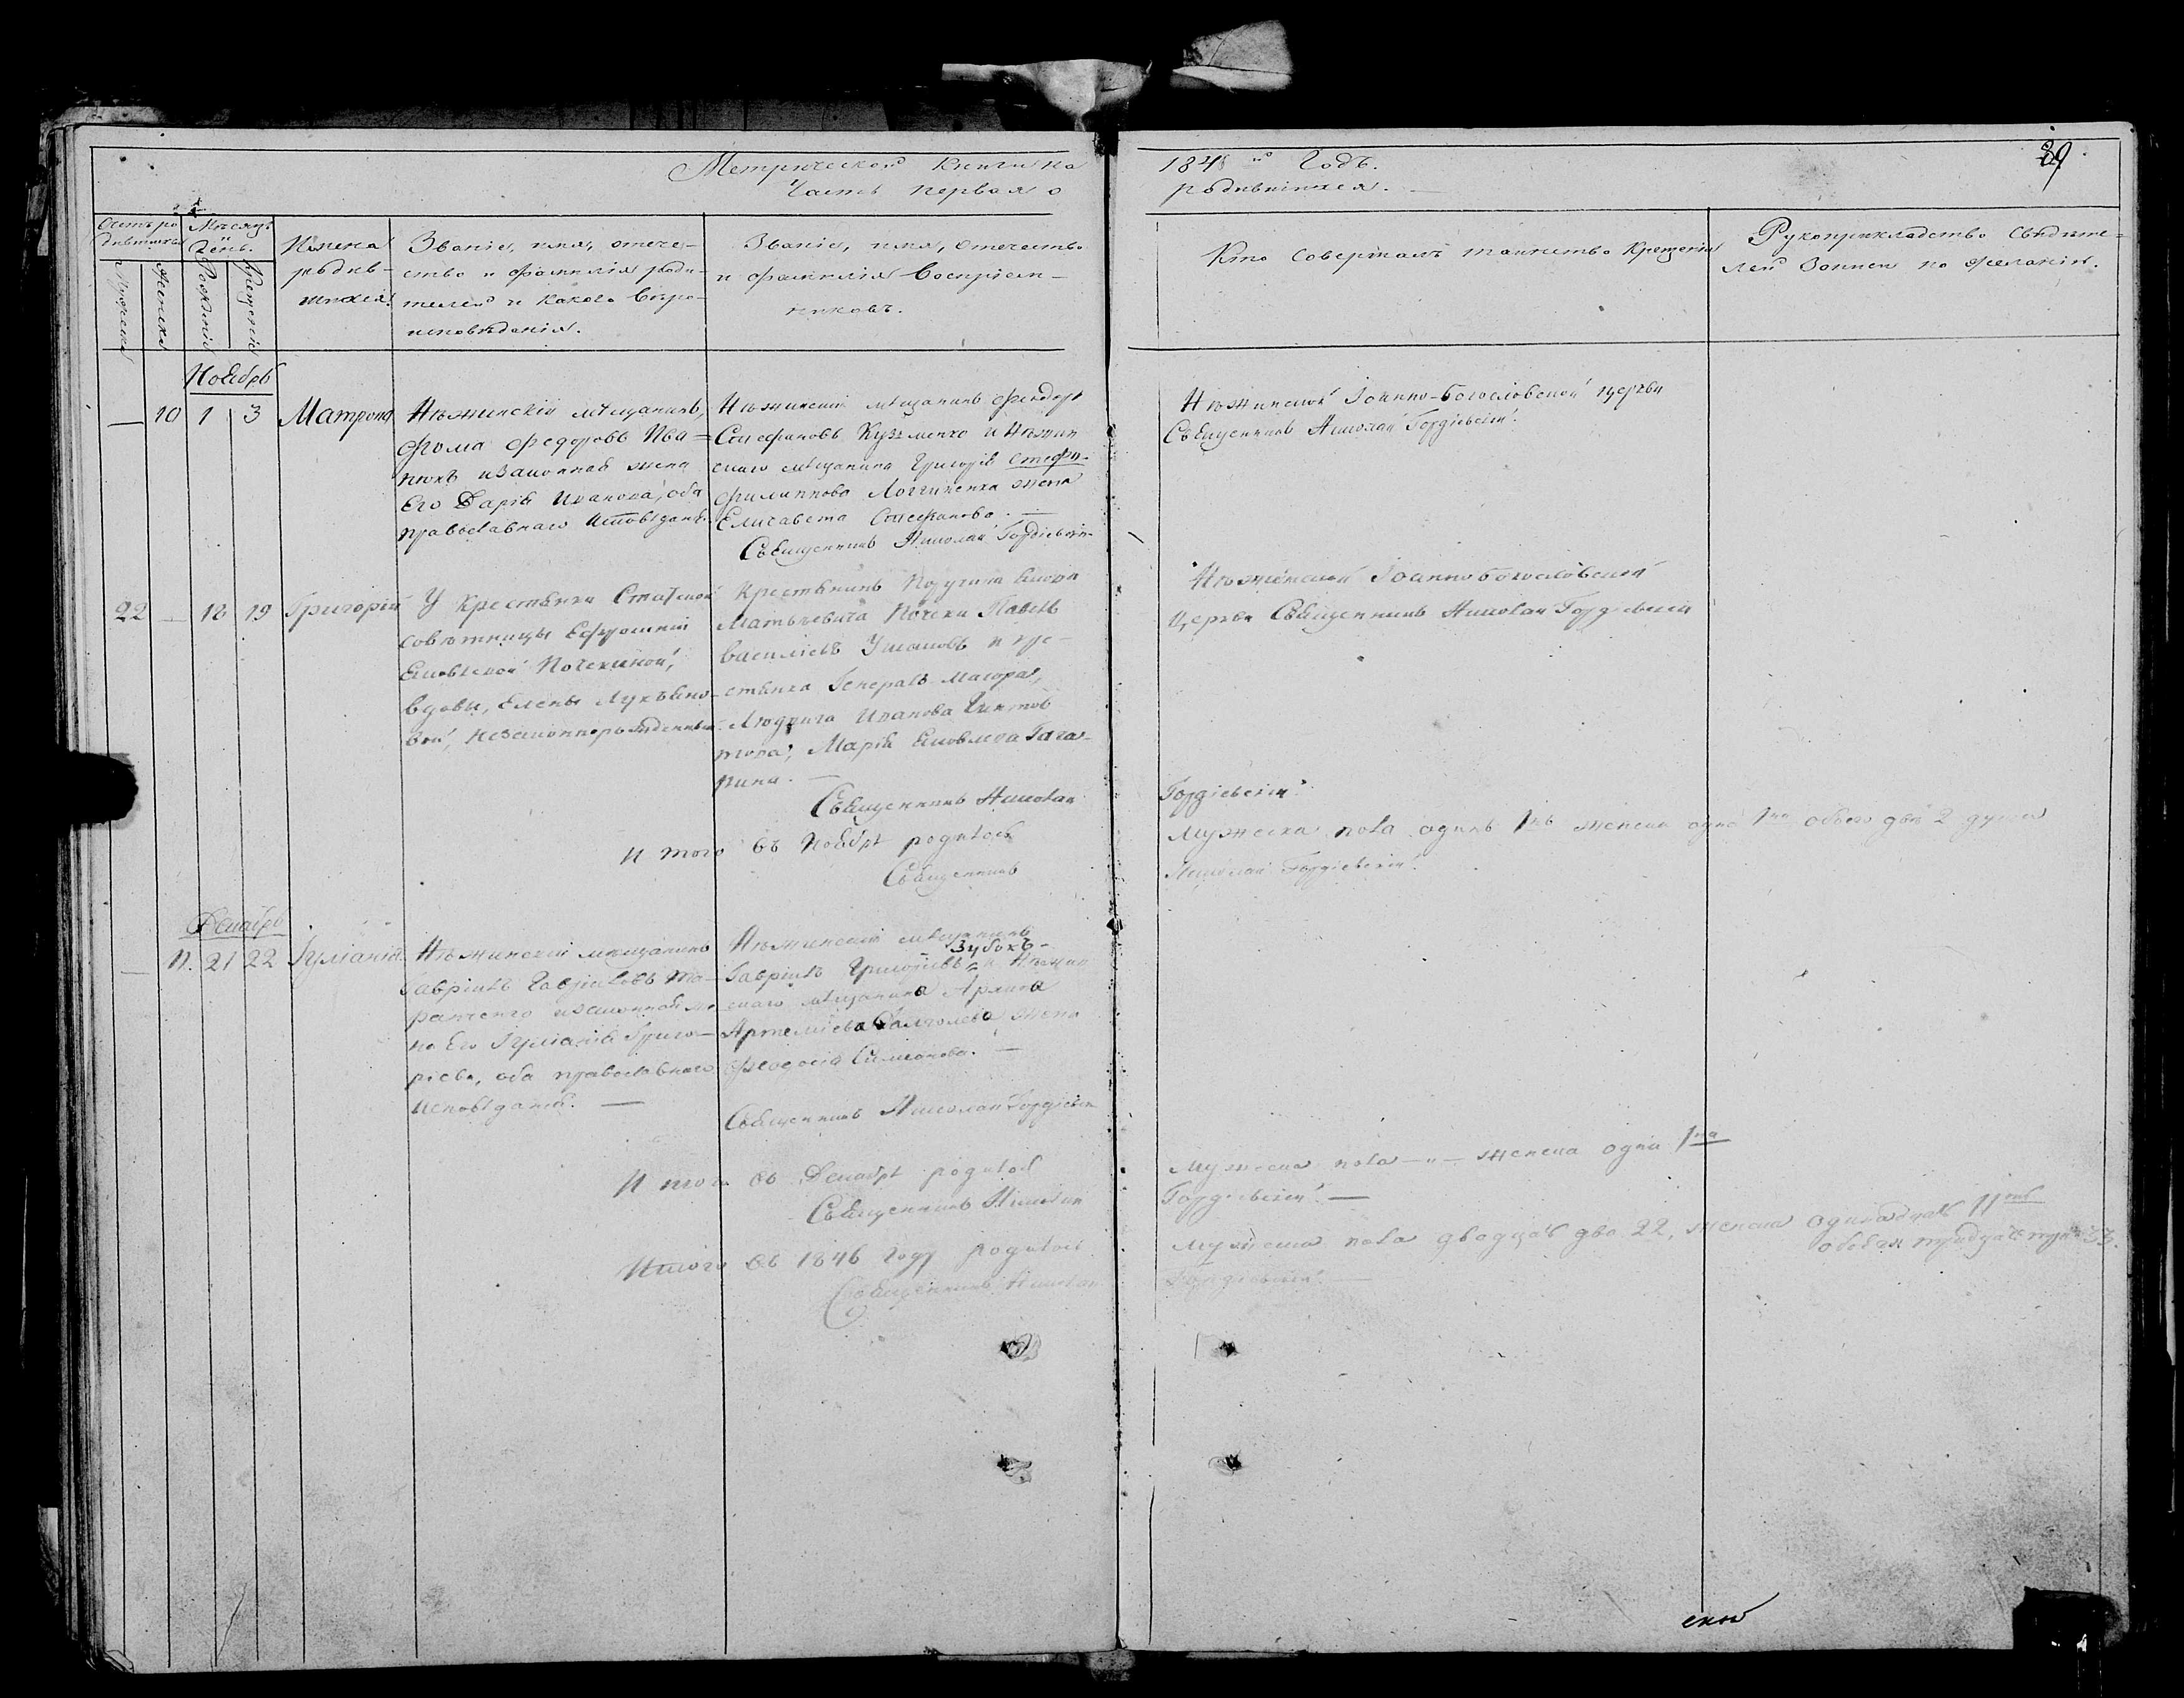 Метрической Книги на 1846й Годъ. 39
Часть первая о родившихся. —
Счетъ ро
дившихся
Мужеска
Женска
Мѣсяцъ
и
День.
Рожденія
Крещенія
Имена
родив-
шихся.
Званіе, имя, отече-
ство и фамилія роди-
телей и какого Вѣро-
исповѣданія.
Званіе, имя, отчество
и фамилія Воспріем-
никовъ.
Кто совершалъ таинство Крещенія
Рукоприкладство Свѣдѣте-
лей Записи по желанію.
Ноябрь
— 10 1 3 Матрона
Нѣжинскій мѣщанинъ,
Фома Федоровъ Ива=
нюкъ изаконная жена
Его Дарія Иванова, оба
православнаго исповѣданія.
Нѣжинскій мѣщанинъ Феодоръ
Стефановъ Кузменко и Нѣжин
скаго мѣщанина Григорія
Филиппова Логгиненка жена
Елисавета Стефанова. —
Священникъ Николай Гордіевскій
Нѣжинской Іоанно-Богословской церкви
Священникъ Николай Гордіевскій.
22 — 18 19 Григорій
У Крестьянки Статской
совѣтницы Ефросиніи
Яковлевой Почекиной,
вдовы, Елены Лукьяно-
вой, незаконнорожденный
Крестьянинъ Якова
Матвѣевича Почеки Павелъ
Василіевъ Ушаковъ и кре-
стьянка Генералъ Маіора,
Людвига Иванова
Марія Яковлева Гага-
рина. —
Священникъ Николай
Гордіевскій.
Нѣжинской Іоанно богословской
Церкви Священникъ Николай Гордіевскій
И того въ Ноябрѣ родилось
Мужеска пола одинъ 1нъ женска одна 1на обоего два 2 души
Священникъ
Николай Гордіевскій.
Декабрь
— 11. 21 22 Іуліанія
Нѣжинскій мещанинъ
Гавріилъ Гавріиловъ Та-
ранченко изаконная же
на Его Іуліанія Григо-
ріева, оба православнаго
исповѣданія. —
Нѣжинскій мѣщанинъ
Зубокъ-
Гавріилъ Григоріевъ и Нѣжин
скаго мѣщанина Архипа
Артеміева жена
Феодосія Симеонова. —
Священникъ Николай Гордіевскій
И того въ Декабрѣ родилось
Мужеска пола — „ — женска одна 1на
Священникъ Николай
Гордіевскій. —
Итого въ 1846 году родилось
Мужеска пола двадцать два 22, женска одинадцать 11ть
обоего тридцать три 33.
Священникъ Николай
Гордіевскій. —